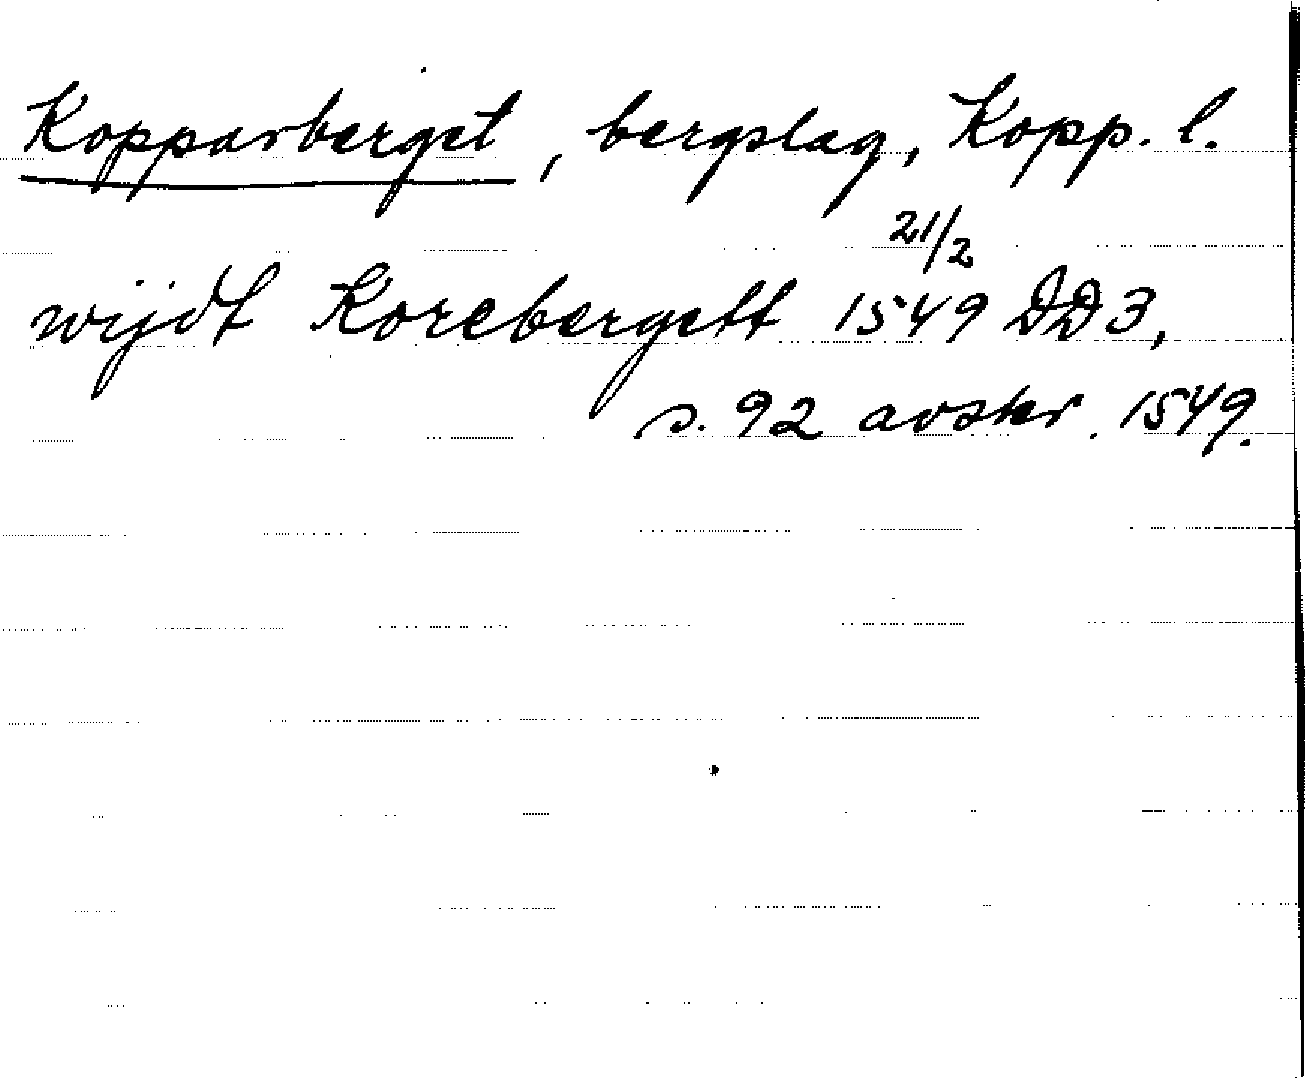 Kopparberget, bergslag, Kopp. l.
wijdt Korebergett 21/2 1549 DD3,
s. 92 avskr. 1549.